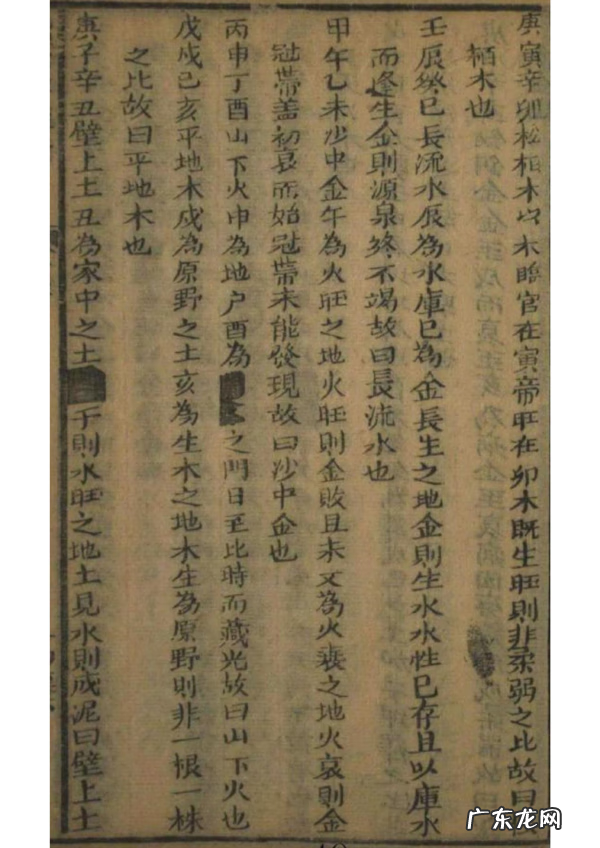 庚寅辛卯松柏木以木臨官在寅帝旺在卯木既生旺則非柔弱之比故曰
栢木也
壬辰癸巳長流水辰為水庫巳為金長生之地金則生水水性巳存且以庫水
而逢生金則源泉終不竭故曰長流水也
甲午乙未沙中金午為火旺之地火旺則金敗且未又為火衰之地火衰則金
冠帶盖初衰而始冠帶未能發現故曰沙中金也
丙申丁酉山下火申為地户酉為之門日至比時而藏光故曰山下火也
戊戌己亥平地木戌為原野之土亥為生木之地木生為原野則非一根一株
之比故曰平地木也
庚子辛丑壁上土丑為家中之土于則水旺之地土見水則成泥曰壁上土
广东龙网